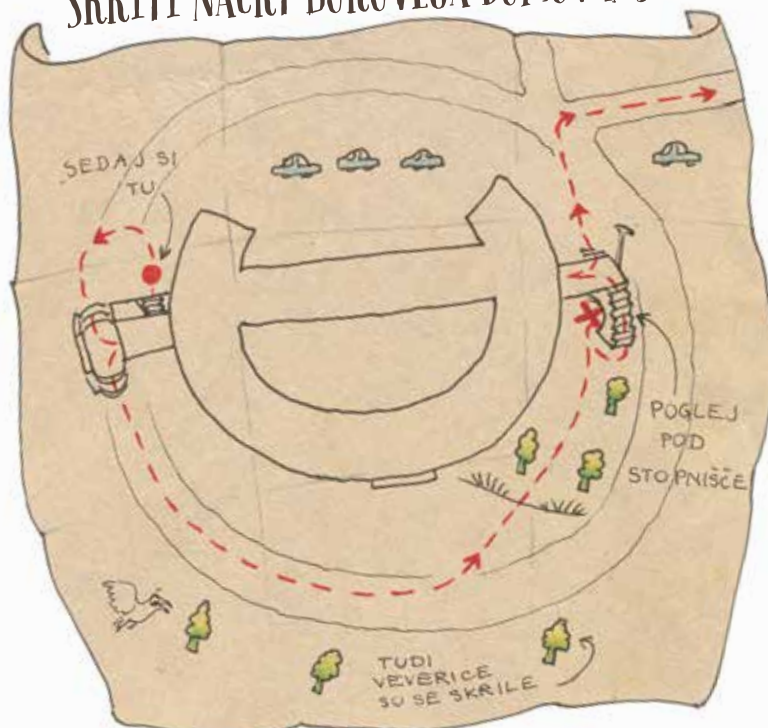 SKRITI NAČRT
SEDAJ SI
TU
POGLEJ
POD
STOPNIŠČE
TUDI
VEVERICE
SO SE SKRILE